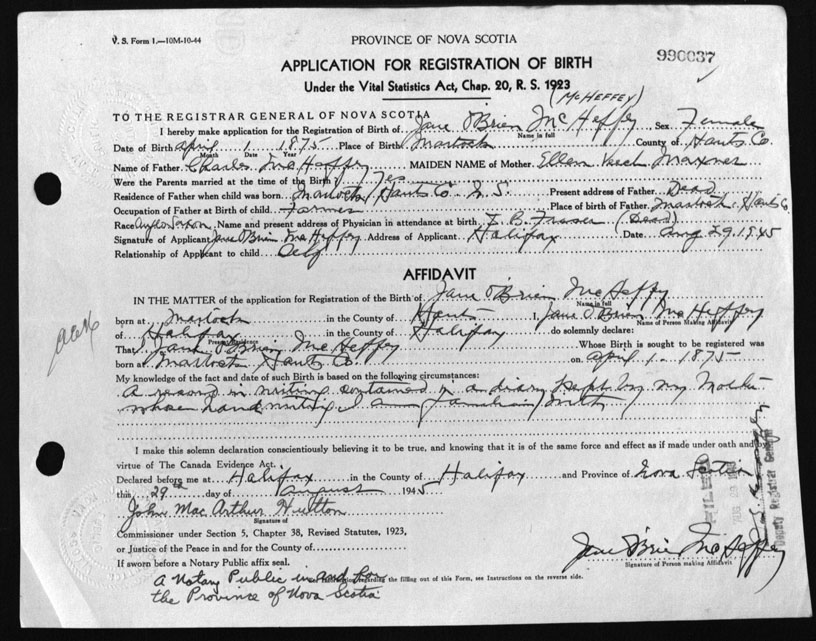 V. S. Form 1.—10M-10-44
PROVINCE OF NOVA SCOTIA
990037
APPLICATION FOR REGISTRATION OF BIRTH
Under the Vital Statistics Act, Chap. 20, R. S. 1923
(McHEFFEY)
TO THE REGISTRAR GENERAL OF NOVA SCOTIA
I hereby make application for the Registration of Birth of Jane O'Brien McHeffey Sex Female
Name in full
Date of Birth April 1 1875 Place of Birth Martock County of Hants Co.
Month Date Year
Name of Father Charles McHeffey MAIDEN NAME of Mother Ellen
Were the Parents married at the time of the Birth Yes
Residence of Father when child was born Martock Hants Co. N.S. Present address of Father Dead
Occupation of Father at Birth of child Farmer Place of birth of Father Martock Hants Co.
Race Anglo Saxon Name and present address of Physician in attendance at birth (Dead)
Signature of Applicant Jane O'Brien McHeffey Address of Applicant Halifax Date Aug 29, 1945
Relationship of Applicant to child Self
AFFIDAVIT
IN THE MATTER of the application for Registration of the Birth of Jane O'Brien McHeffey
Name in full
born at Martock in the County of Hants I, Jane O'Brien McHeffey
Name of Person Making Affidavit
of Halifax in the County of Halifax do solemnly declare:
Present Residence
That Jane O'Brien McHeffey Whose Birth is sought to be registered was
born at Martock Hants Co. on April 1 - 1875
My knowledge of the fact and date of such Birth is based on the following circumstances:
A record in writing contained in a diary kept by my Mother
whose handwriting I am familiar with
I make this solemn declaration conscientiously believing it to be true, and knowing that it is of the same force and effect as if made under oath and by
virtue of The Canada Evidence Act.
Declared before me at Halifax in the County of Halifax and Province of Nova Scotia
this 29 day of August 1945
John MacArthur Hutton
Signature of
Commissioner under Section 5, Chapter 38, Revised Statutes, 1923,
or Justice of the Peace in and for the County of
If sworn before a Notary Public affix seal.
Jane O'Brien McHeffey
Signature of Person making Affidavit
regarding the filling out of this Form, see Instructions on the reverse side.
A Notary Public in and for
the Province of Nova Scotia
FILED
Deputy Registrar General